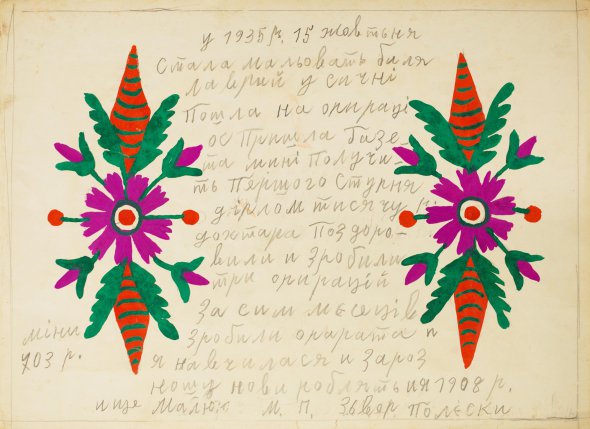 у 1935 р. 15 жовтьня
Стала мальовать биля
лаврий у сичні
Пошла на операці
ос Пришла Газе
та мині Получи-
ть Першого Ступня
диплом тисячу
доктара Поздоро-
вили и зробили
три операций
За сим месеців
зробили опарата п
я навчилася и зароз
ношу нови роблять ия 1908 р.
и ще Малюю М. П.
міни
703 р.